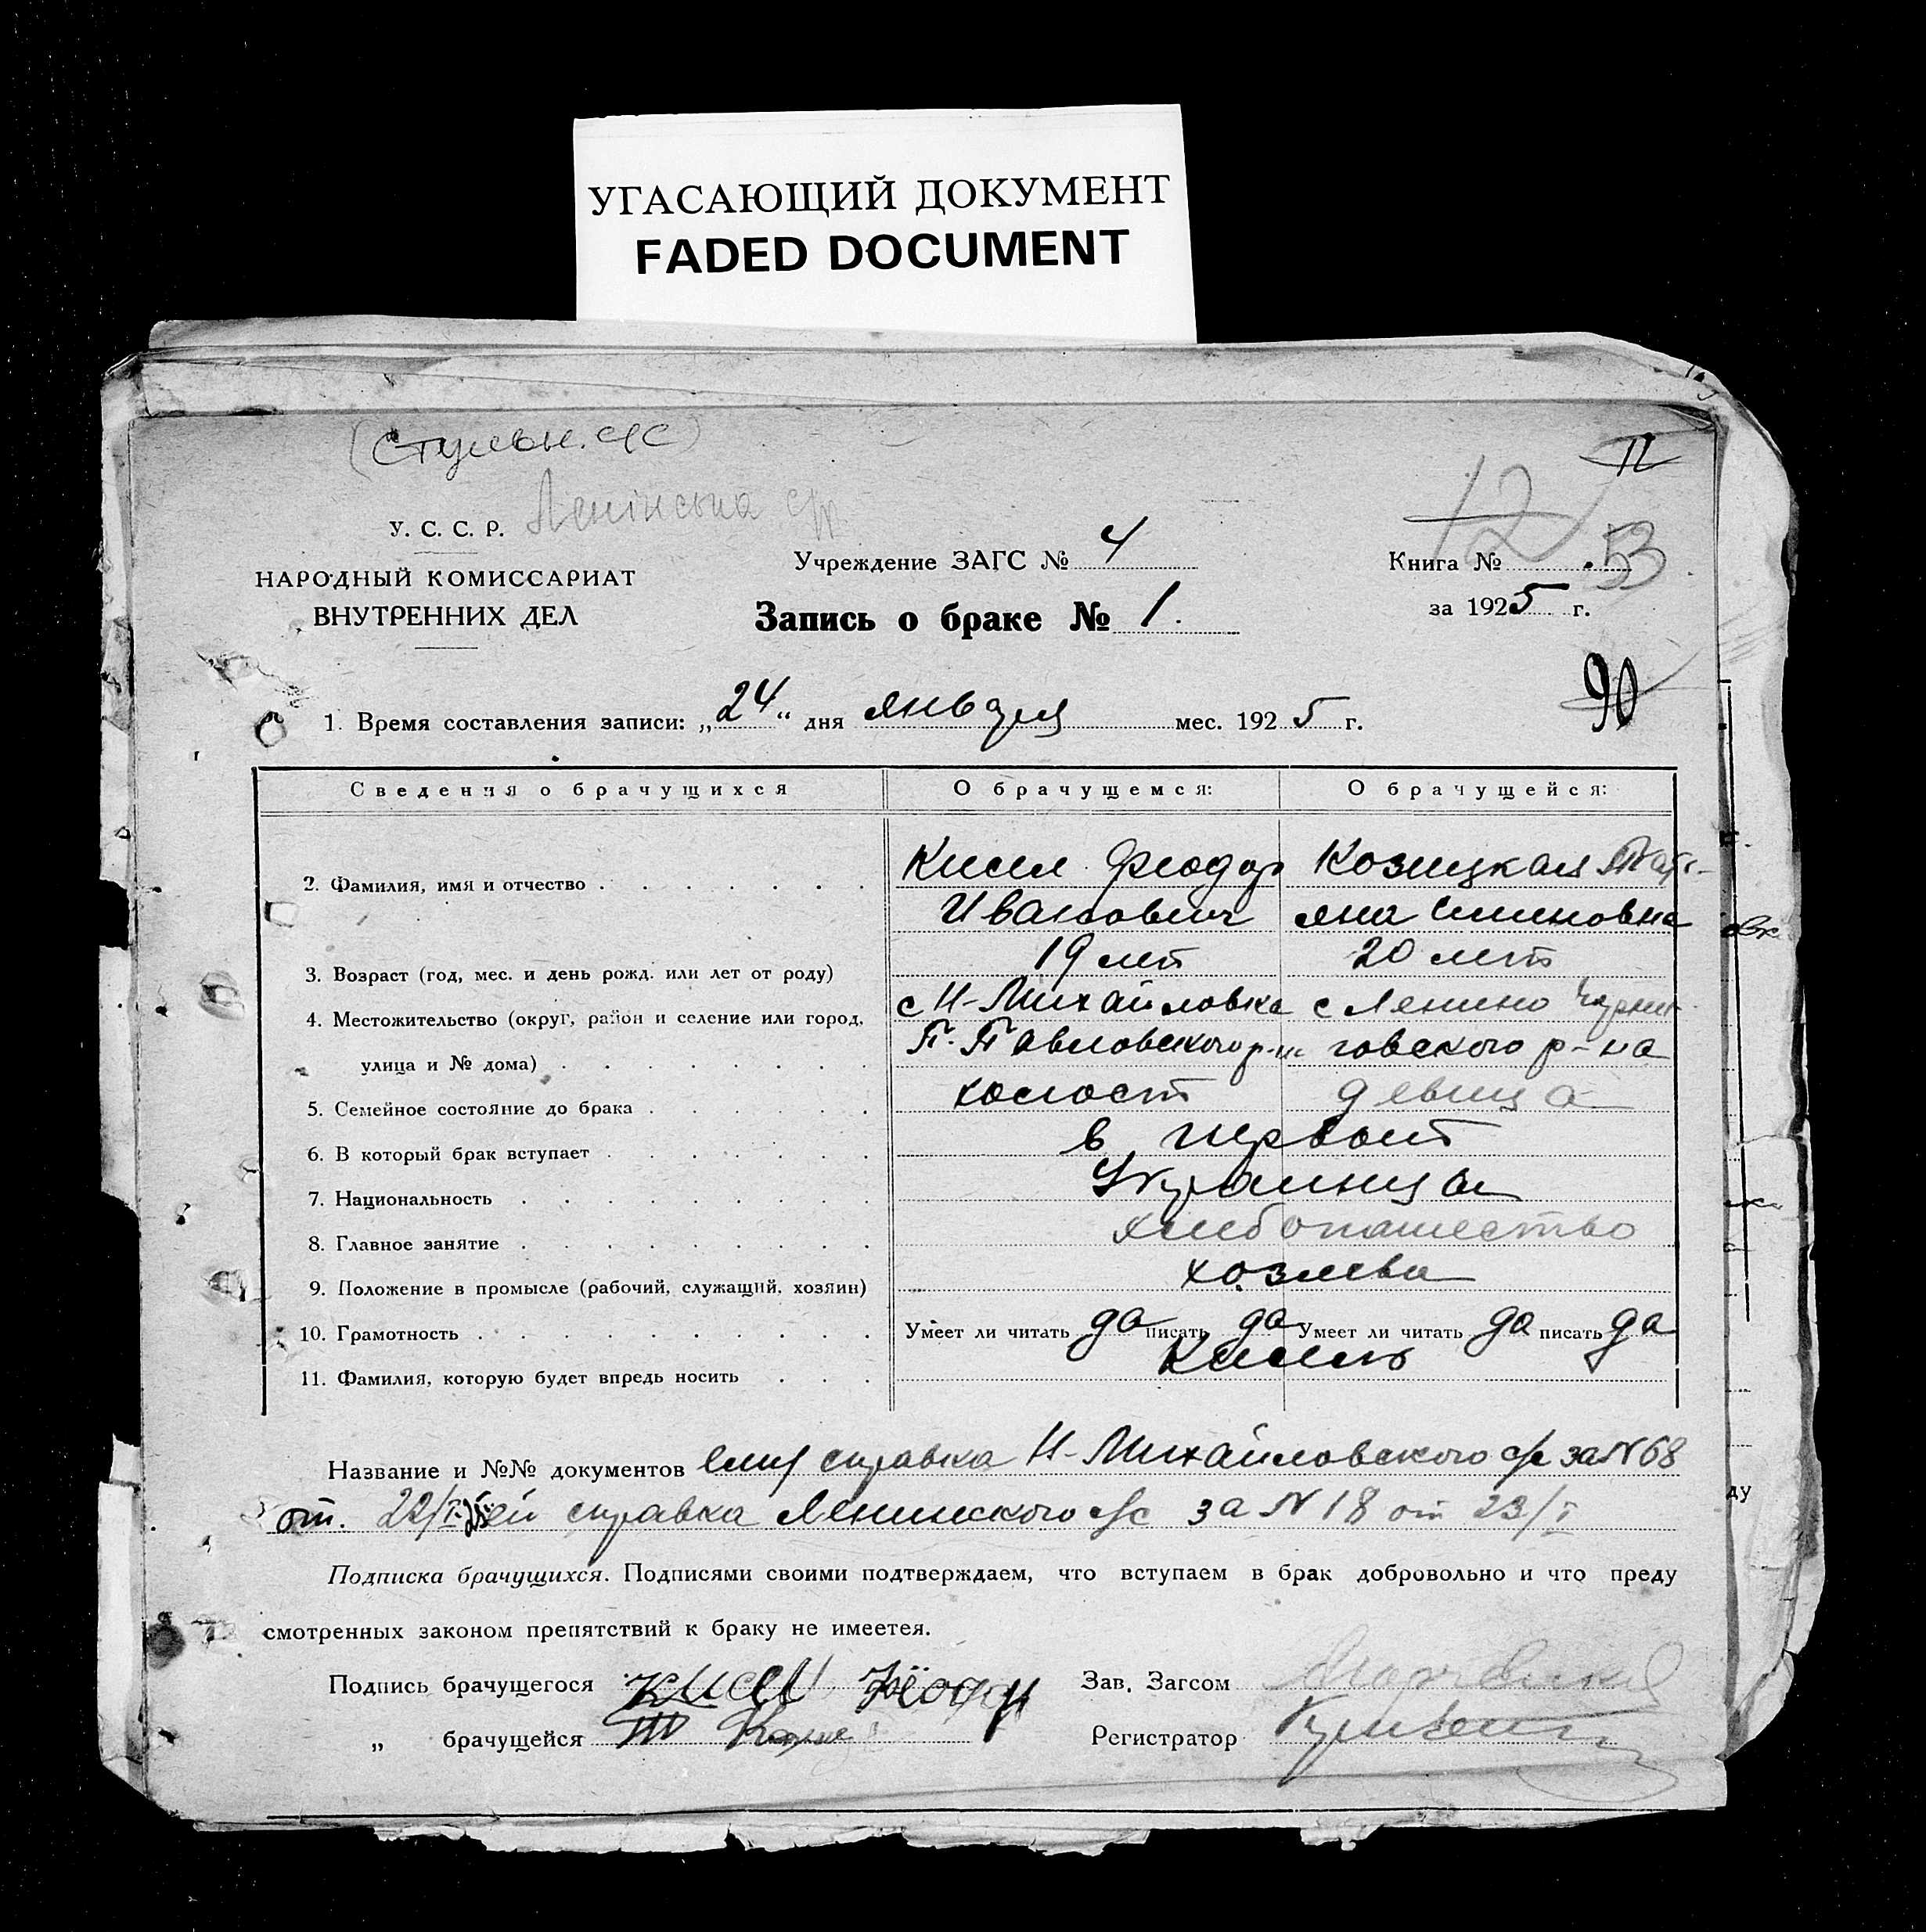 УГАСАЮЩИЙ ДОКУМЕНТ
FADED DOCUMENT
Ленінська с/р
У. С. С. Р.
НАРОДНЫЙ КОМИССАРИАТ
ВНУТРЕННИХ ДЕЛ
Учреждение ЗАГС № 4
Запись о браке № 1.
12
Книга № 53
за 1925 г.
90
1. Время составления записи: „24“ дня января мес. 1925 г.
Сведения о брачущихся О брачущемся: О брачущейся:
2. Фамилия, имя и отчество Кисел Феодор Козицкая Тать-
Иванович яна Симновна
3. Возраст (год, мес. и день рожд. или лет от роду) 19 лет 20 лет
4. Местожительство (округ, район и селение или город, с Н-Михайловка с Ленино Черни-
улица и № дома) П. Павловского р-на говского р-на
5. Семейное состояние до брака холост девица
6. В который брак вступает в первый
7. Национальность Украинцы
8. Главное занятие хлебопашество
9. Положение в промысле (рабочий, служащий, хозяин) хозяева
10. Грамотность Умеет ли читать да писать да Умеет ли читать да писать да
11. Фамилия, которую будет впредь носить Кисель
Название и №№ документов ему справка Н-Михайловского с/с за N 68
от. 22/I 25 ей справка Ленинского с/с за N 18 от 23/I
Подписка брачущихся. Подписями своими подтверждаем, что вступаем в брак добровольно и что преду
смотренных законом препятствий к браку не имеетея.
Подпись брачущегося Кисел Фёодор Зав. Загсом
„ брачущейся Регистратор